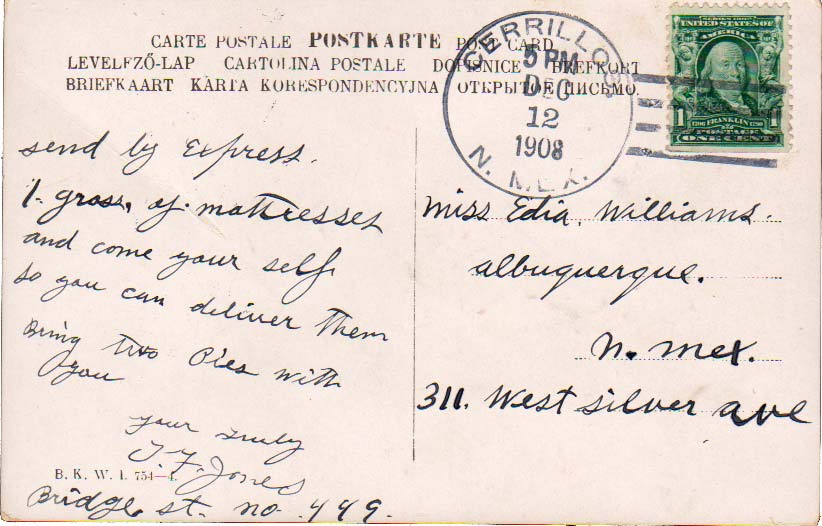 CARTE POSTALE POSTKARTE POST CARD
LEVELFZŐ-LAP CARTOLINA POSTALE DOPISNICE BREFKORT
BRIEFKAART KARTA KORESPONDENCYJNA ОТКРЫТОЕ ПИСЬМО.
CERRILLOS
5 PM
DEC
12
1908
N. MEX.
SERIES 1902
UNITED STATES OF
AMERICA
1 1
1706 FRANKLIN 1790
POSTAGE
ONE CENT
send by Express.
1. gross, of mattresses
and come your self
so you can deliver them
Bring two Pies with
you
your truly
T. F. Jones
B. K. W. I. 754-4.
Bridge st. no. 449.
Miss Edia, Williams.
albuquerque.
N. Mex.
311. West silver ave